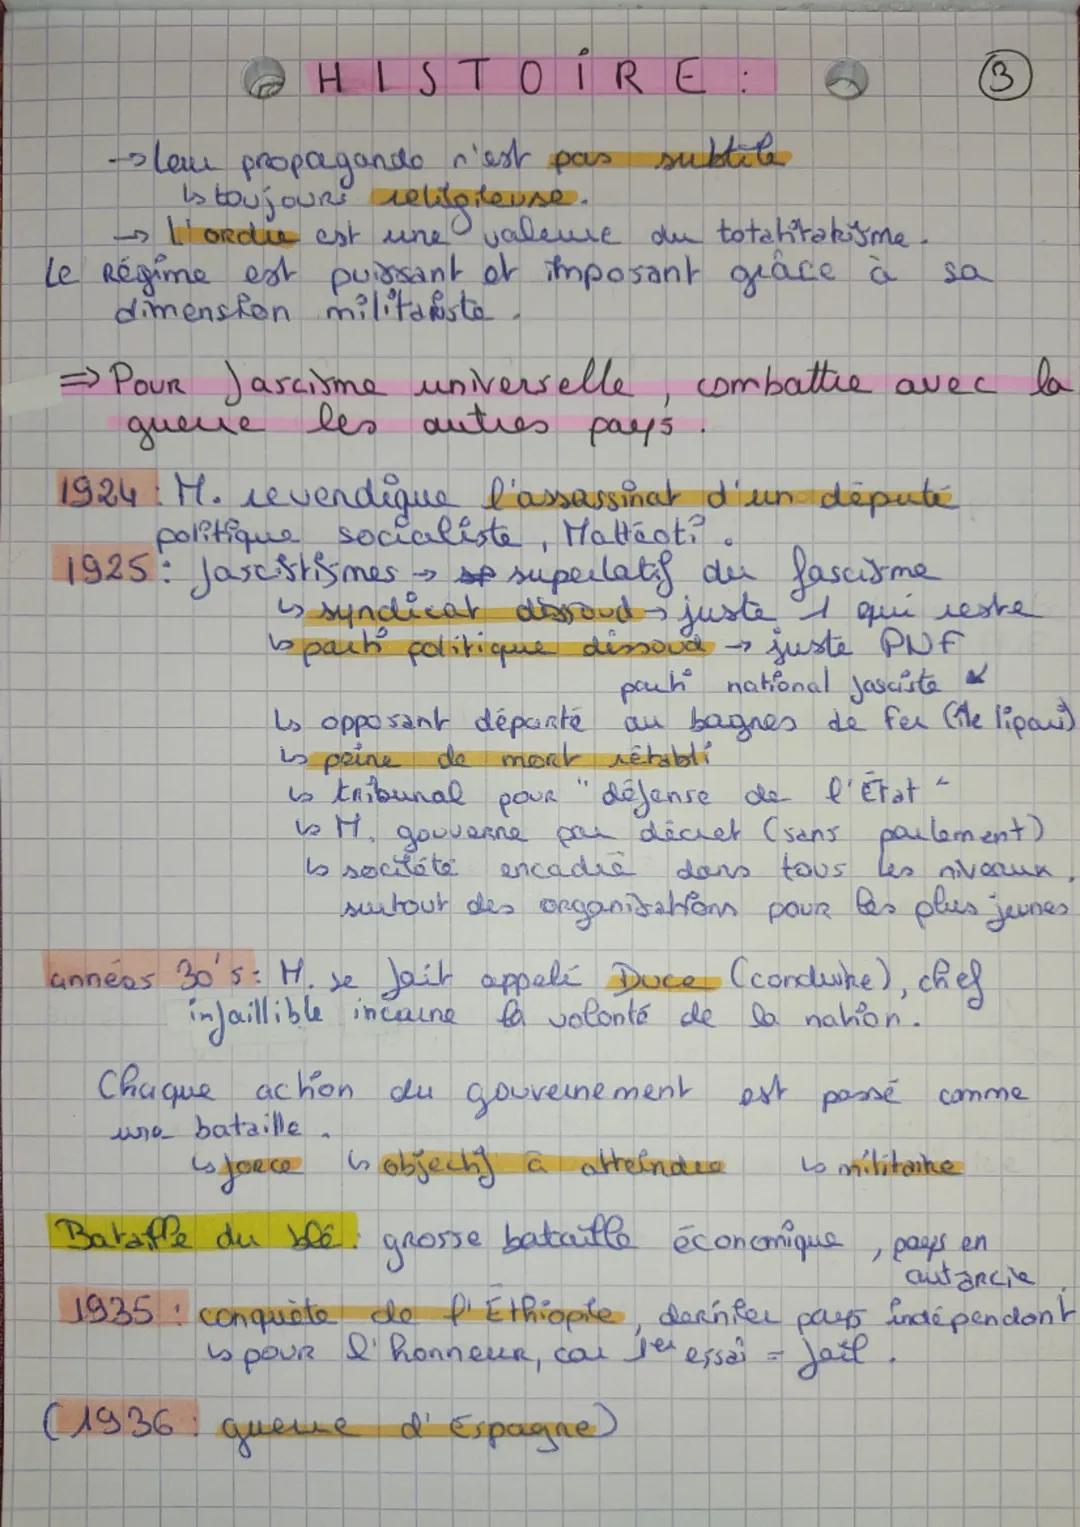 HISTOIRE :
3
→ leur propagande n'est pas subtile
↳ toujours religieuse.
→ L'ordre est une valeure du totalitarisme.
Le Régime est puissant et imposant grâce à sa
dimension militariste.
⇒ Pour fascisme universelle, combattre avec la
guerre les autres pays.
1924 : M. revendique l'assassinat d'un député
politique socialiste, Mattéoti.
1925 : fascistismes → superlatif du fascisme
↳ syndicat dissoud → juste 1 qui reste
↳ parti politique dissoud → juste PNF
parti national fasciste
↳ opposant déporté au bagnes de fer (île lipari)
↳ peine de mort rétabli
↳ tribunal pour "défense de l'État"
↳ M. gouverne par décret (sans parlement)
↳ société encadré dans tous les niveaux,
surtout des organisations pour les plus jeunes
années 30's : M. se fait appelé Duce (conduire), chef
infaillible incarne la volonté de la nation.
Chaque action du gouvernement est passé comme
une bataille.
↳ force ↳ objectif à atteindre ↳ militaire
Bataille du blé : grosse bataille économique, pays en
autarcie
1935 : conquète de l'Éthiopie, dernier pays indépendant
↳ pour l'honneur, car 1er essai = fail.
(1936 : guerre d'Espagne)